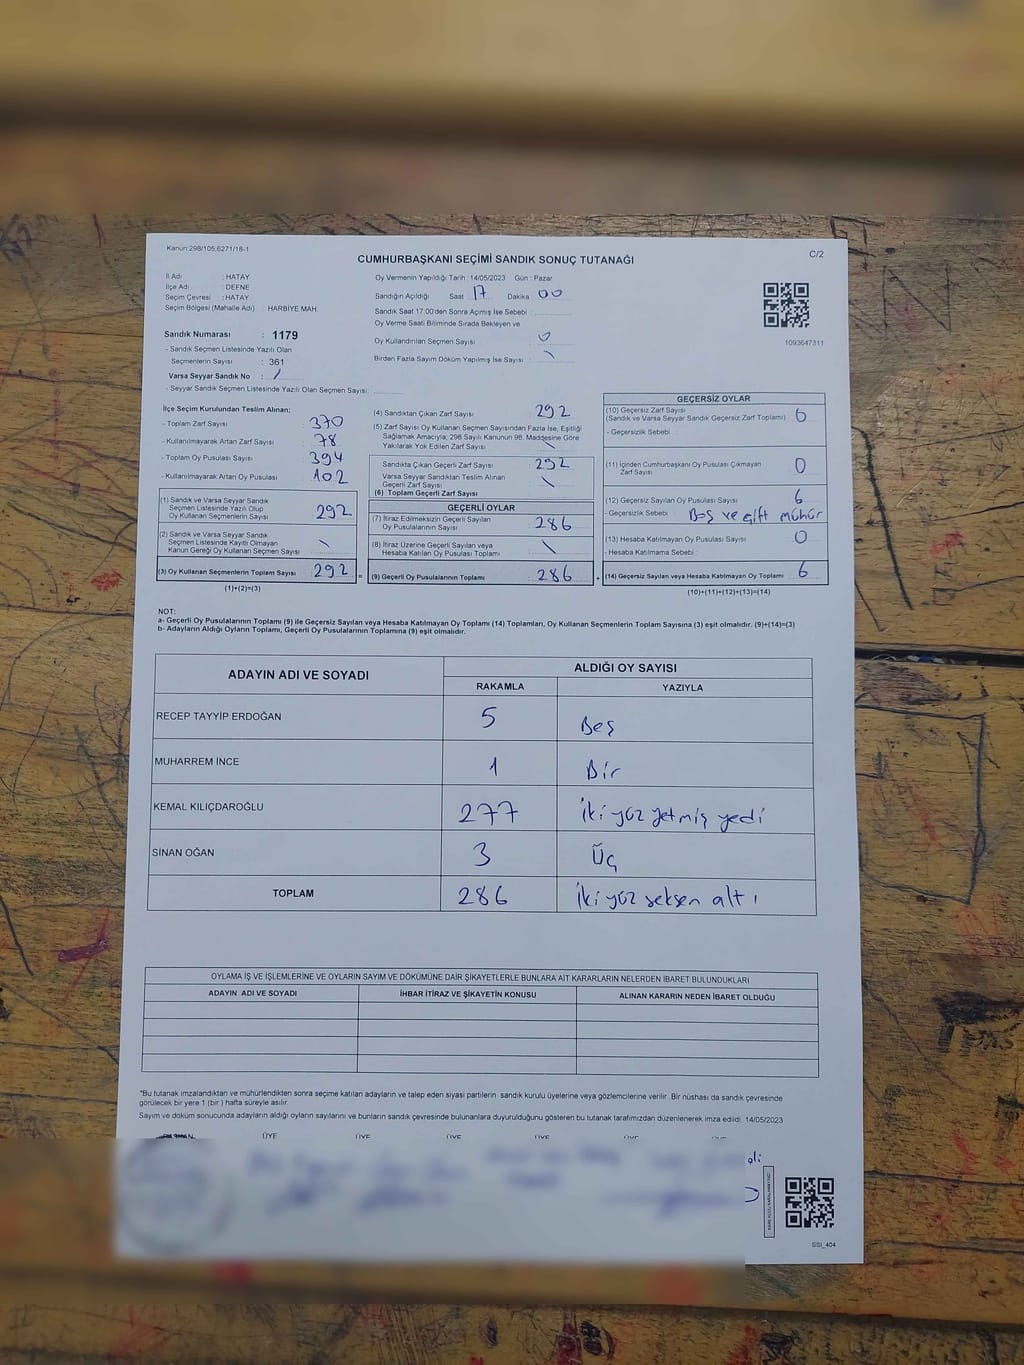 Kanun:298/105;6271/18-1
C/2
CUMHURBAŞKANI SEÇİMİ SANDIK SONUÇ TUTANAĞI
İl Adı : HATAY
İlçe Adı : DEFNE
Seçim Çevresi : HATAY
Seçim Bölgesi (Mahalle Adı) : HARBİYE MAH.
Sandık Numarası : 1179
- Sandık Seçmen Listesinde Yazılı Olan
Seçmenlerin Sayısı : 361
Varsa Seyyar Sandık No :
- Seyyar Sandık Seçmen Listesinde Yazılı Olan Seçmen Sayısı:
Oy Vermenin Yapıldığı Tarih :14/05/2023 Gün : Pazar
Sandığın Açıldığı Saat 17 Dakika 00
Sandık Saat 17:00'den Sonra Açımış İse Sebebi :
Oy Verme Saati Bitiminde Sırada Bekleyen ve
Oy Kullandırılan Seçmen Sayısı : 0
Birden Fazla Sayım Döküm Yapılmış İse Sayısı : \
1093647311
İlçe Seçim Kurulundan Teslim Alınan;
- Toplam Zarf Sayısı : 370
- Kullanılmayarak Artan Zarf Sayısı : 78
- Toplam Oy Pusulası Sayısı : 394
- Kullanılmayarak Artan Oy Pusulası : 102
(1) Sandık ve Varsa Seyyar Sandık
Seçmen Listesinde Yazılı Olup
Oy Kullanan Seçmenlerin Sayısı : 292
(2) Sandık ve Varsa Seyyar Sandık
Seçmen Listesinde Kayıtlı Olmayan
Kanun Gereği Oy Kullanan Seçmen Sayısı : \
(3) Oy Kullanan Seçmenlerin Toplam Sayısı : 292 =
(1)+(2)=(3)
(4) Sandıktan Çıkan Zarf Sayısı : 292
(5) Zarf Sayısı Oy Kullanan Seçmen Sayısından Fazla İse, Eşitliği
Sağlamak Amacıyla, 298 Sayılı Kanunun 98. Maddesine Göre
Yakılarak Yok Edilen Zarf Sayısı : \
Sandıkta Çıkan Geçerli Zarf Sayısı : 292
Varsa Seyyar Sandıktan Teslim Alınan
Geçerli Zarf Sayısı : \
(6) Toplam Geçerli Zarf Sayısı
GEÇERLİ OYLAR
(7) İtiraz Edilmeksizin Geçerli Sayılan
Oy Pusulalarının Sayısı : 286
(8) İtiraz Üzerine Geçerli Sayılan veya
Hesaba Katılan Oy Pusulası Toplamı : \
(9) Geçerli Oy Pusulalarının Toplamı : 286 +
GEÇERSİZ OYLAR
(10) Geçersiz Zarf Sayısı
(Sandık ve Varsa Seyyar Sandık Geçersiz Zarf Toplamı) :
- Geçersizlik Sebebi :
(11) İçinden Cumhurbaşkanı Oy Pusulası Çıkmayan
Zarf Sayısı : 0
(12) Geçersiz Sayılan Oy Pusulası Sayısı : 6
- Geçersizlik Sebebi : Boş ve çift mühür
(13) Hesaba Katılmayan Oy Pusulası Sayısı : 0
- Hesaba Katılmama Sebebi :
(14) Geçersiz Sayılan veya Hesaba Katılmayan Oy Toplamı : 6
(10)+(11)+(12)+(13)=(14)
NOT:
a- Geçerli Oy Pusulalarının Toplamı (9) ile Geçersiz Sayılan veya Hesaba Katılmayan Oy Toplamı (14) Toplamları, Oy Kullanan Seçmenlerin Toplam Sayısına (3) eşit olmalıdır. (9)+(14)=(3)
b- Adayların Aldığı Oyların Toplamı, Geçerli Oy Pusulalarının Toplamına (9) eşit olmalıdır.
ADAYIN ADI VE SOYADI ALDIĞI OY SAYISI
RAKAMLA YAZIYLA
RECEP TAYYİP ERDOĞAN 5 Beş
MUHARREM İNCE 1 Bir
KEMAL KILIÇDAROĞLU 277 İki yüz yetmiş yedi
SİNAN OĞAN 3 Üç
TOPLAM 286 İki yüz seksen altı
OYLAMA İŞ VE İŞLEMLERİNE VE OYLARIN SAYIM VE DÖKÜMÜNE DAİR ŞİKAYETLERLE BUNLARA AİT KARARLARIN NELERDEN İBARET BULUNDUKLARI
ADAYIN ADI VE SOYADI İHBAR İTİRAZ VE ŞİKAYETİN KONUSU ALINAN KARARIN NEDEN İBARET OLDUĞU
"Bu tutanak imzalandıktan ve mühürlendikten sonra seçime katılan adayların ve talep eden siyasi partilerin sandık kurulu üyelerine veya gözlemcilerine verilir. Bir nüshası da sandık çevresinde
görülecek bir yere 1 (bir ) hafta süreyle asılır.
Sayım ve döküm sonucunda adayların aldığı oyların sayılarını ve bunların sandık çevresinde bulunanlara duyurulduğunu gösteren bu tutanak tarafımızdan düzenlenerek imza edildi. 14/05/2023
ÜYE ÜYE ÜYE ÜYE ÜYE ÜYE
SSI_404